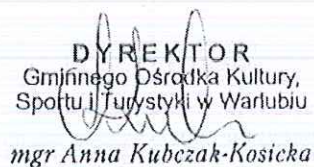 DYREKTOR
Gminnego Ośrodka Kultury,
Sportu i Turystyki w Warlubiu
mgr Anna Kubczak-Kosicka